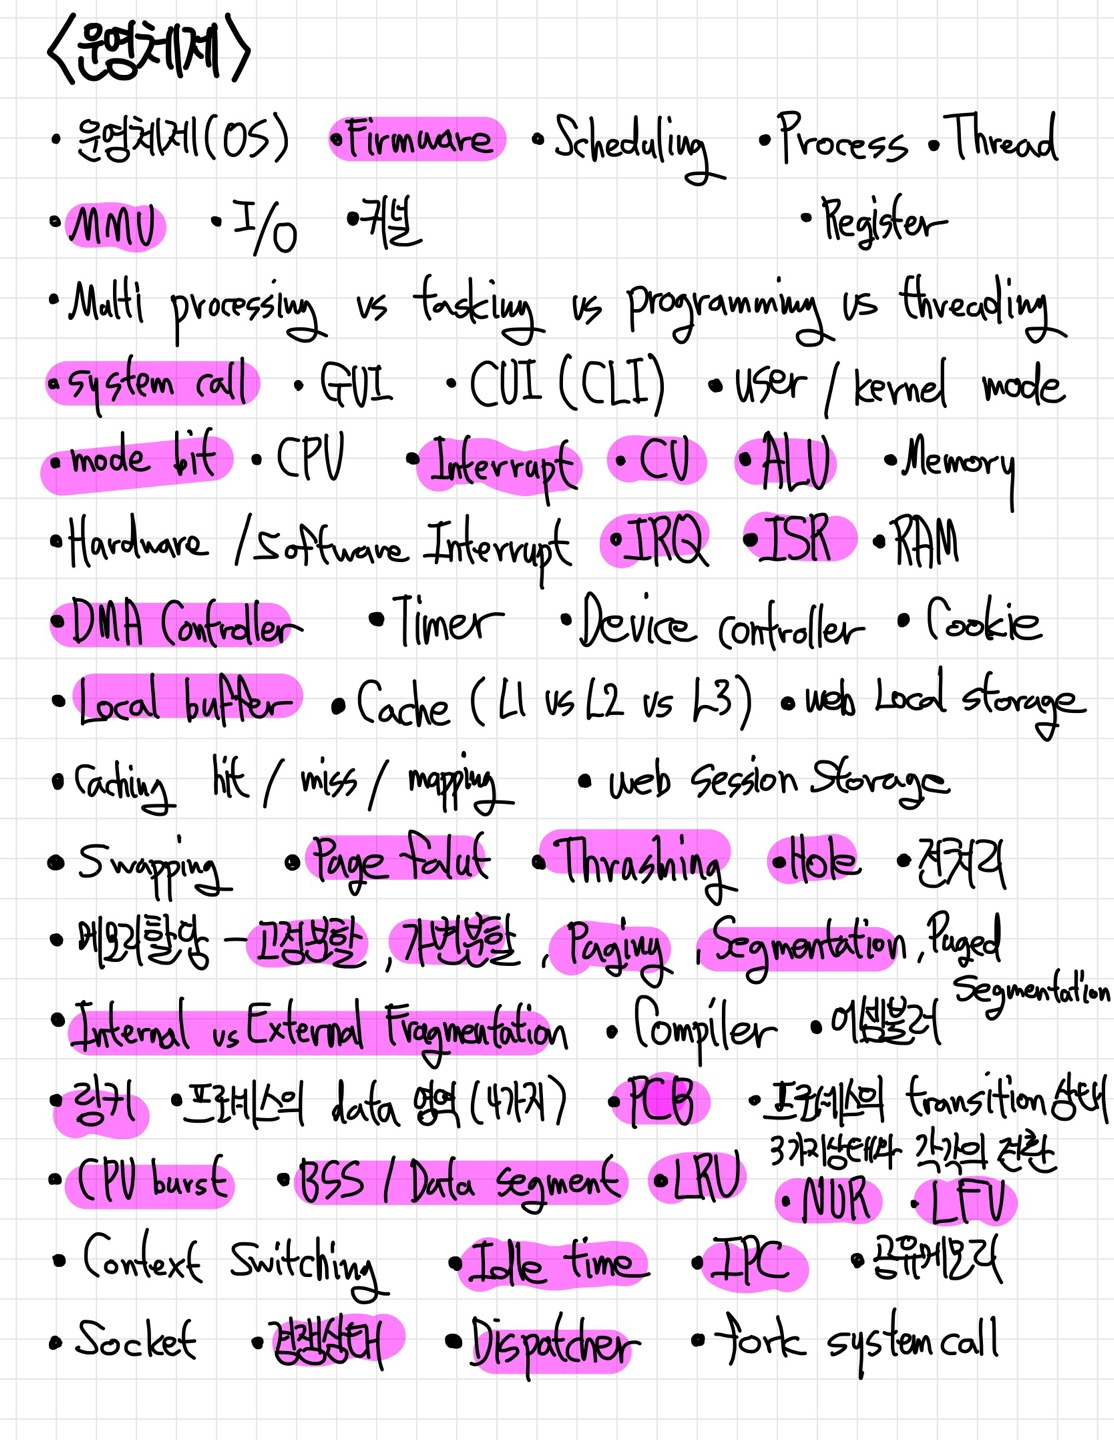 <운영체제>
• 운영체제(OS) • Firmware • Scheduling • Process • Thread
• MMU • I/O •커널 • Register
• Multi processing vs tasking vs programming vs threading
• system call • GUI • CUI (CLI) • user / kernel mode
• mode bit • CPU • Interrupt • CU • ALU • Memory
• Hardware / Software Interrupt • IRQ • ISR • RAM
• DMA Controller • Timer • Device controller • Cookie
• Local buffer • Cache (L1 vs L2 vs L3) • web Local storage
• Caching hit / miss / mapping • web Session Storage
• Swapping • Page falut • Thrashing • Hole • 전처리
• 메모리할당 – 고정분할, 가변분할, Paging, Segmentation, Paged
Segmentation
• Internal vs External Fragmentation • Compiler • 어셈블러
• 링커 • 프로세스의 data 영역 (4가지) • PCB • 프로세스의 transition 상태
3가지상태와 각각의 전환
• CPU burst • BSS / Data segment • LRU • NUR • LFU
• Context Switching • Idle time • IPC • 공유메모리
• Socket • 경쟁상태 • Dispatcher • fork system call